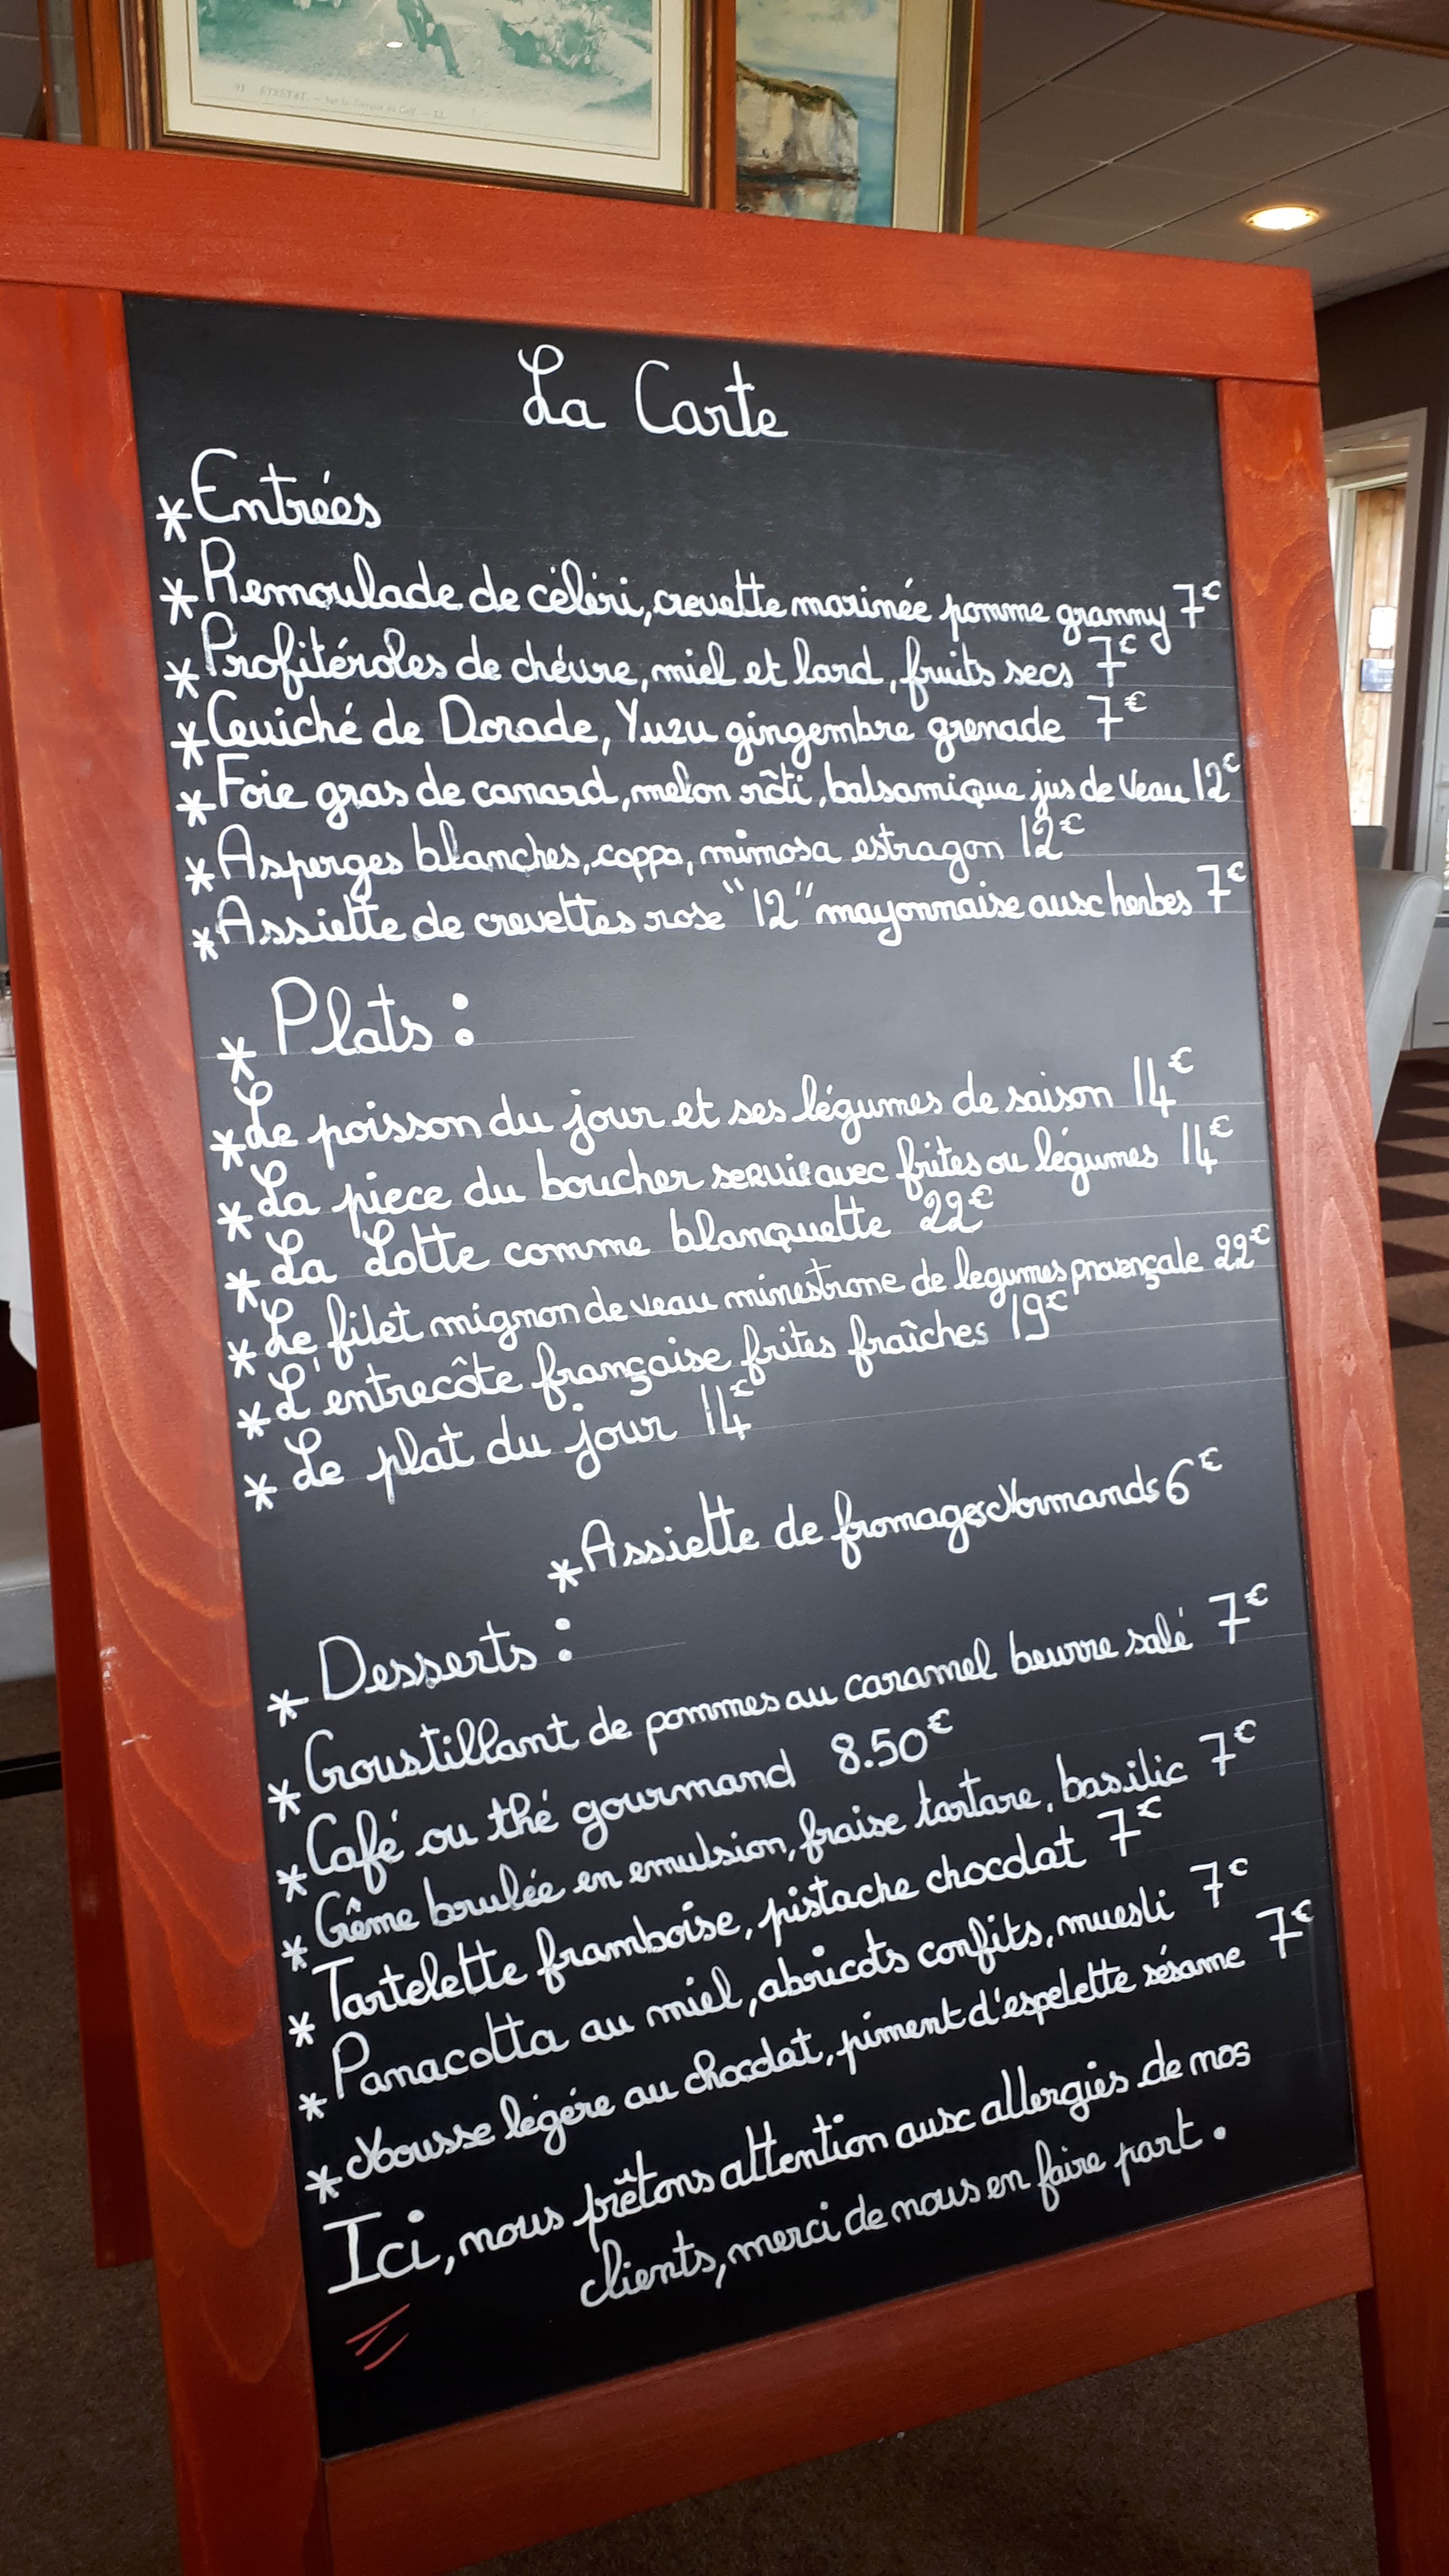 91 ÉTRETAT. - Sur le Terrain du Golf. - LL.
La Carte
* Entrées
* Remoulade de céleri, crevette marinée pomme granny 7€
* Profitéroles de chévre, miel et lard, fruits secs 7€
* Ceviché de Dorade, Yuzu gingembre grenade 7€
* Foie gras de canard, melon rôti, balsamique jus de veau 12€
* Asperges blanches, coppa, mimosa estragon 12€
* Assiette de crevettes rose "12" mayonnaise aux herbes 7€
* Plats :
* Le poisson du jour et ses légumes de saison 14€
* La piece du boucher servie avec frites ou légumes 14€
* La Lotte comme blanquette 22€
* Le filet mignon de veau minestrone de legumes provençale 22€
* L'entrecôte française frites fraîches 19€
* Le plat du jour 14€
* Assiette de fromages Normands 6€
* Desserts :
* Croustillant de pommes au caramel beurre salé 7€
* Café ou thé gourmand 8.50€
* Crême brulée en emulsion, fraise tartare, basilic 7€
* Tartelette framboise, pistache chocolat 7€
* Panacotta au miel, abricots confits, muesli 7€
* Mousse légére au chocolat, piment d'espelette sésame 7€
Ici, nous prêtons attention aux allergies de nos
clients, merci de nous en faire part.